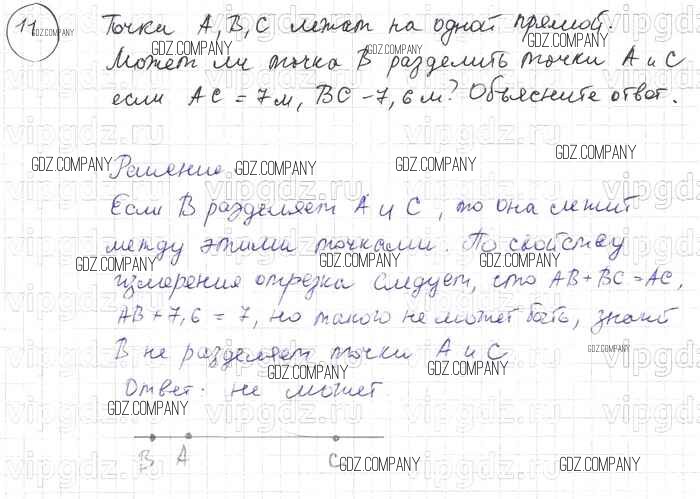 11 Точки A, B, C лежат на одной прямой.
Может ли точка B разделять точки A и C
если AC = 7м, BC - 7,6м? Объясните ответ.
Решение.
Если B разделяет A и C, то она лежит
между этими точками. По свойству
измерения отрезка следует, что AB + BC = AC,
AB + 7,6 = 7, но такого не может быть, значит
B не разделяет точки A и C
Ответ. не может
B A C
GDZ.COMPANY
vipgdz.ru